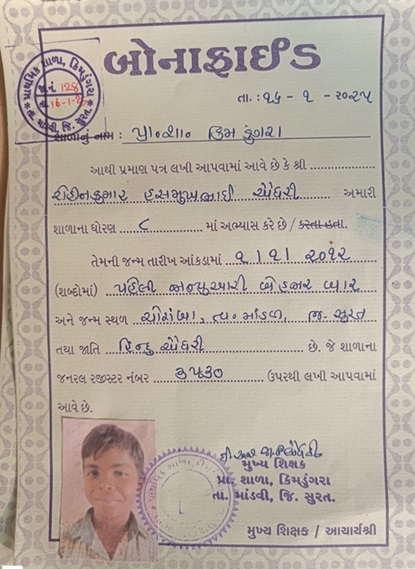 બોનાફાઈડ
પ્રાથમિક શાળા, કિમડુંગરા
જા.નં. 128
તા. 16-1-2
તા. માંડવી, જિ. સુરત.
તા. : ૧૬ - ૧ - ૨૦૨૫
શાળાનું નામ : પ્રા૦ શા૦ કિમ ડુંગરા
આથી પ્રમાણ પત્ર લખી આપવામાં આવે છે કે શ્રી
હસમુખભાઈ ચૌધરી અમારી
શાળાના ધોરણ ૮ માં અભ્યાસ કરે છે / કરતા હતા.
તેમની જન્મ તારીખ આંકડામાં ૧ । ૧ । ૨૦૧૨
(શબ્દોમાં) પહેલી જાન્યુઆરી બે હજાર બાર
અને જન્મ સ્થળ તા૦ માંડવી, જિ. સુરત
તથા જાતિ હિન્દુ ચૌધરી છે. જે શાળાના
જનરલ રજીસ્ટર નંબર ૩૫૩૦ ઉપરથી લખી આપવામાં
આવે છે.
મુખ્ય શિક્ષક
પ્રા. શાળા, કિમડુંગરા
તા. માંડવી, જિ. સુરત.
મુખ્ય શિક્ષક / આચાર્યશ્રી